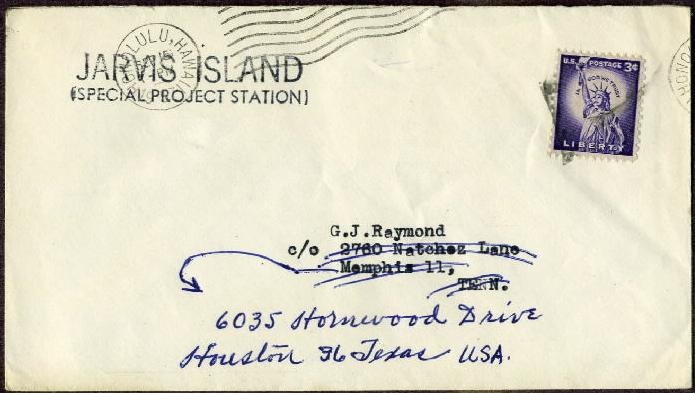 HONOLULU, HAWAII
JARVIS ISLAND
(SPECIAL PROJECT STATION)
U.S. POSTAGE 3¢
IN GOD WE TRUST
LIBERTY
HONO
G.J.Raymond
c/o 2760 Natchez Lane
Memphis 11,
TENN.
6035 Hornwood Drive
Houston 36 Texas USA.